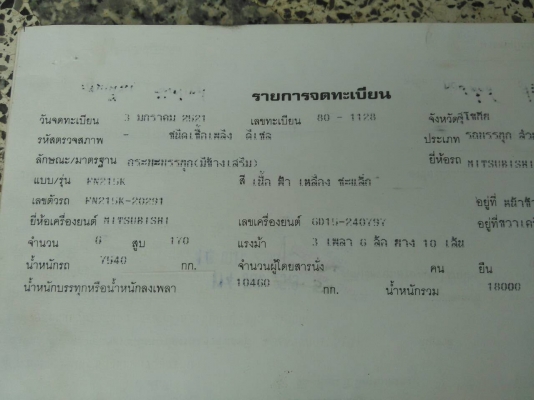 รายการจดทะเบียน
วันจดทะเบียน 3 มกราคม 2521 เลขทะเบียน 80 - 1128 จังหวัดสุโขทัย
รหัสตรวจสภาพ - ชนิดเชื้อเพลิง ดีเซล ประเภท รถบรรทุก
ลักษณะ/มาตรฐาน กระบะบรรทุก(มีข้างเสริม) ยี่ห้อรถ MITSUBISHI
แบบ/รุ่น FN215K สี เนื้อ ฟ้า เหลือง
เลขตัวรถ FN215K-20291 อยู่ที่
ยี่ห้อเครื่องยนต์ MITSUBISHI เลขเครื่องยนต์ 6D15-240797 อยู่ที่ขวา
จำนวน 6 สูบ 170 แรงม้า 3 เพลา 6 ล้อ ยาง 10 เส้น
น้ำหนักรถ 7540 กก. จำนวนผู้โดยสารนั่ง คน ยืน
น้ำหนักบรรทุกหรือน้ำหนักลงเพลา 10460 กก. น้ำหนักรวม 18000